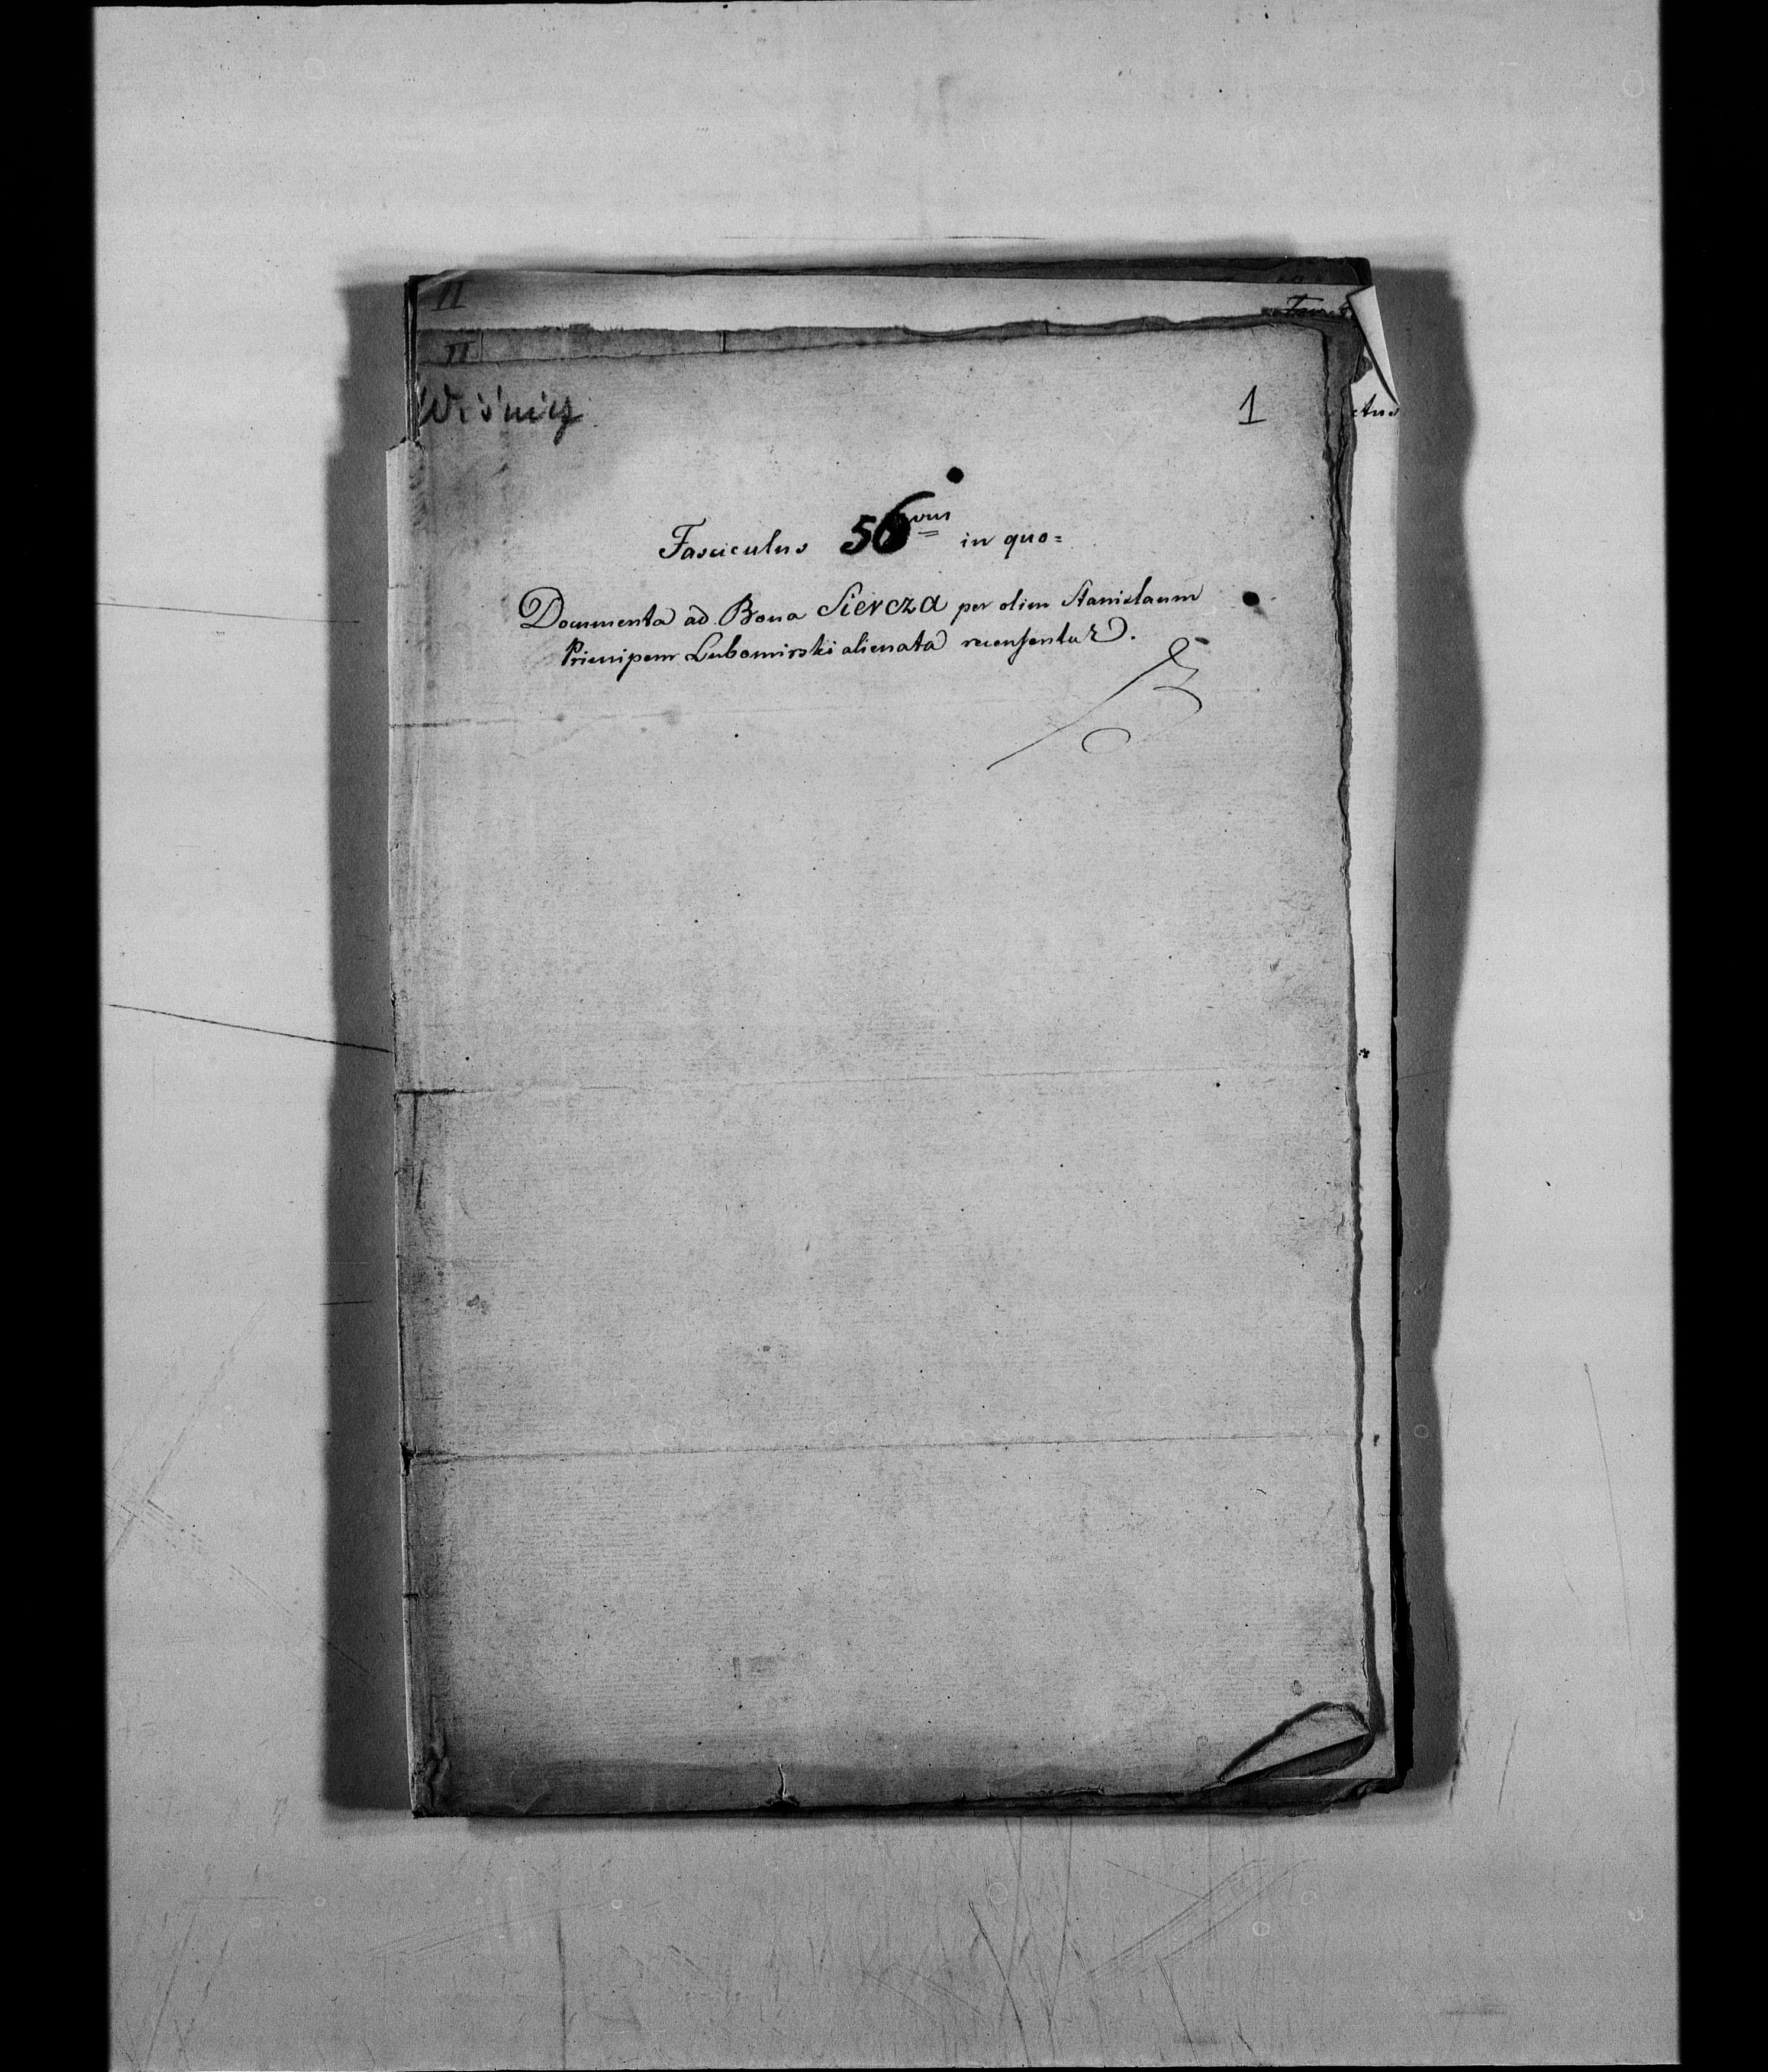 II
II
Wiśnicz
1
ctus
Fasciculus 56vus in quo=
Documenta ad Bona Siercza per olim Stanislaum
Principem Lubomirski alienata recensentur.